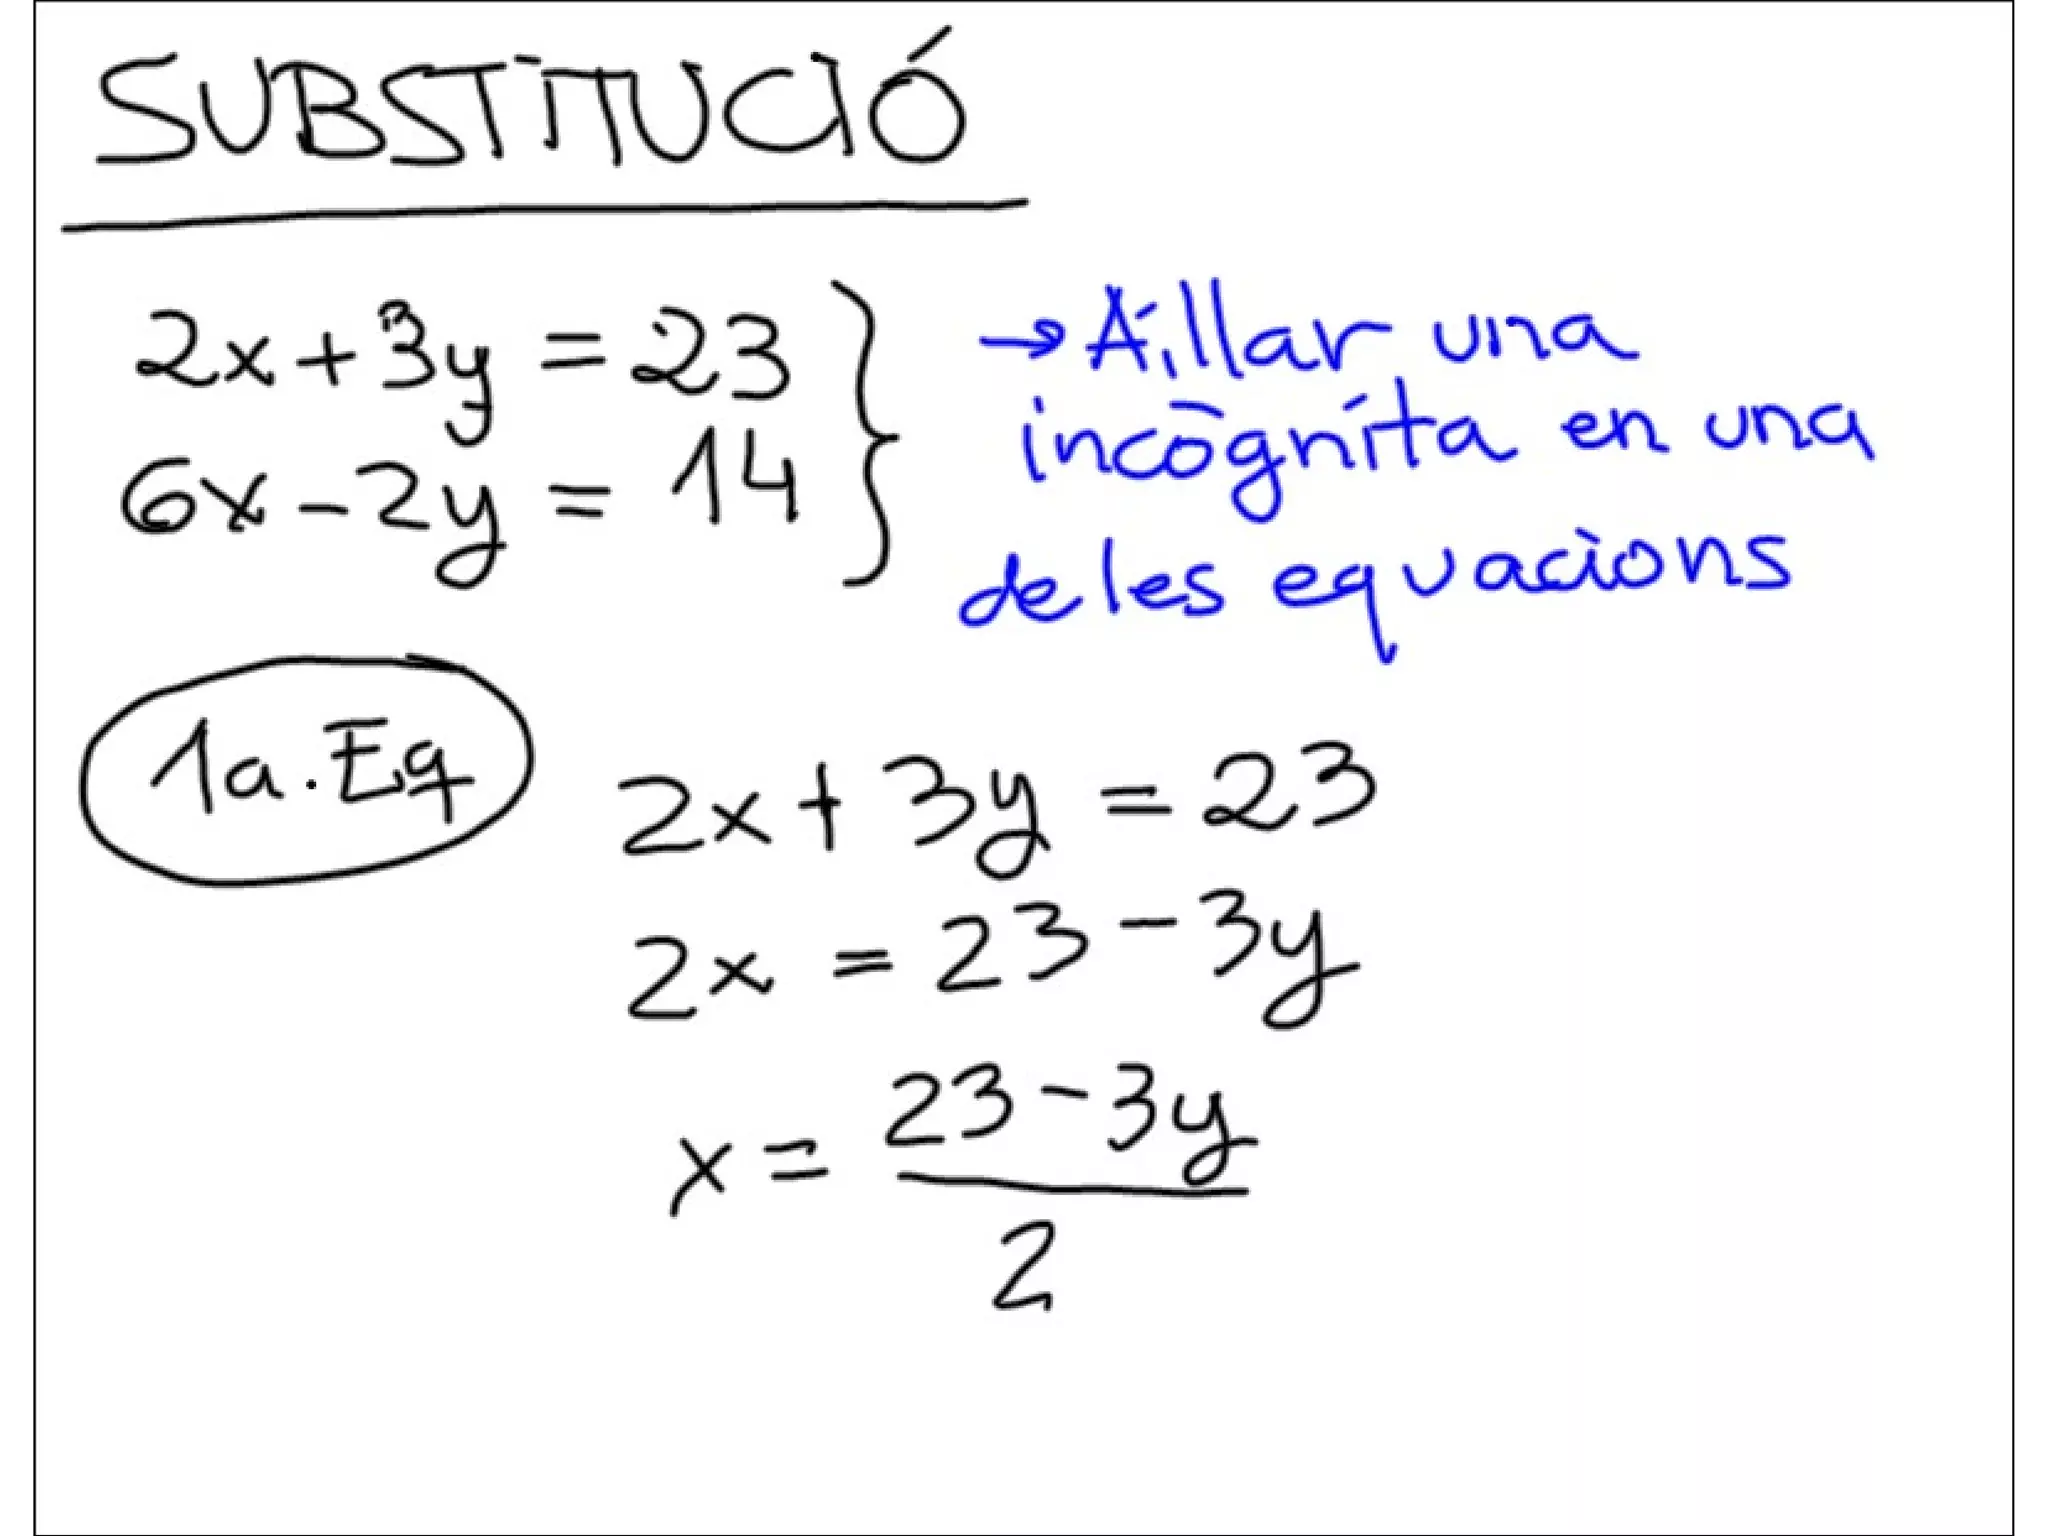 SUBSTITUCIÓ
2x+3y=23
6x-2y=14
→ Aïllar una
incògnita en una
de les equacions
1a.Eq
2x+3y=23
2x=23-3y
x=23-3y
2